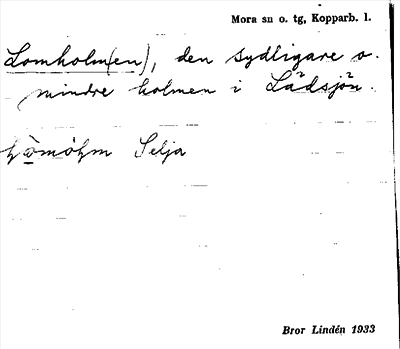 Mora sn o. tg, Kopparb. l.
Lomholm(en), den sydligare o.
mindre holmen i Lådsjön.
Selja
Bror Lindén 1933